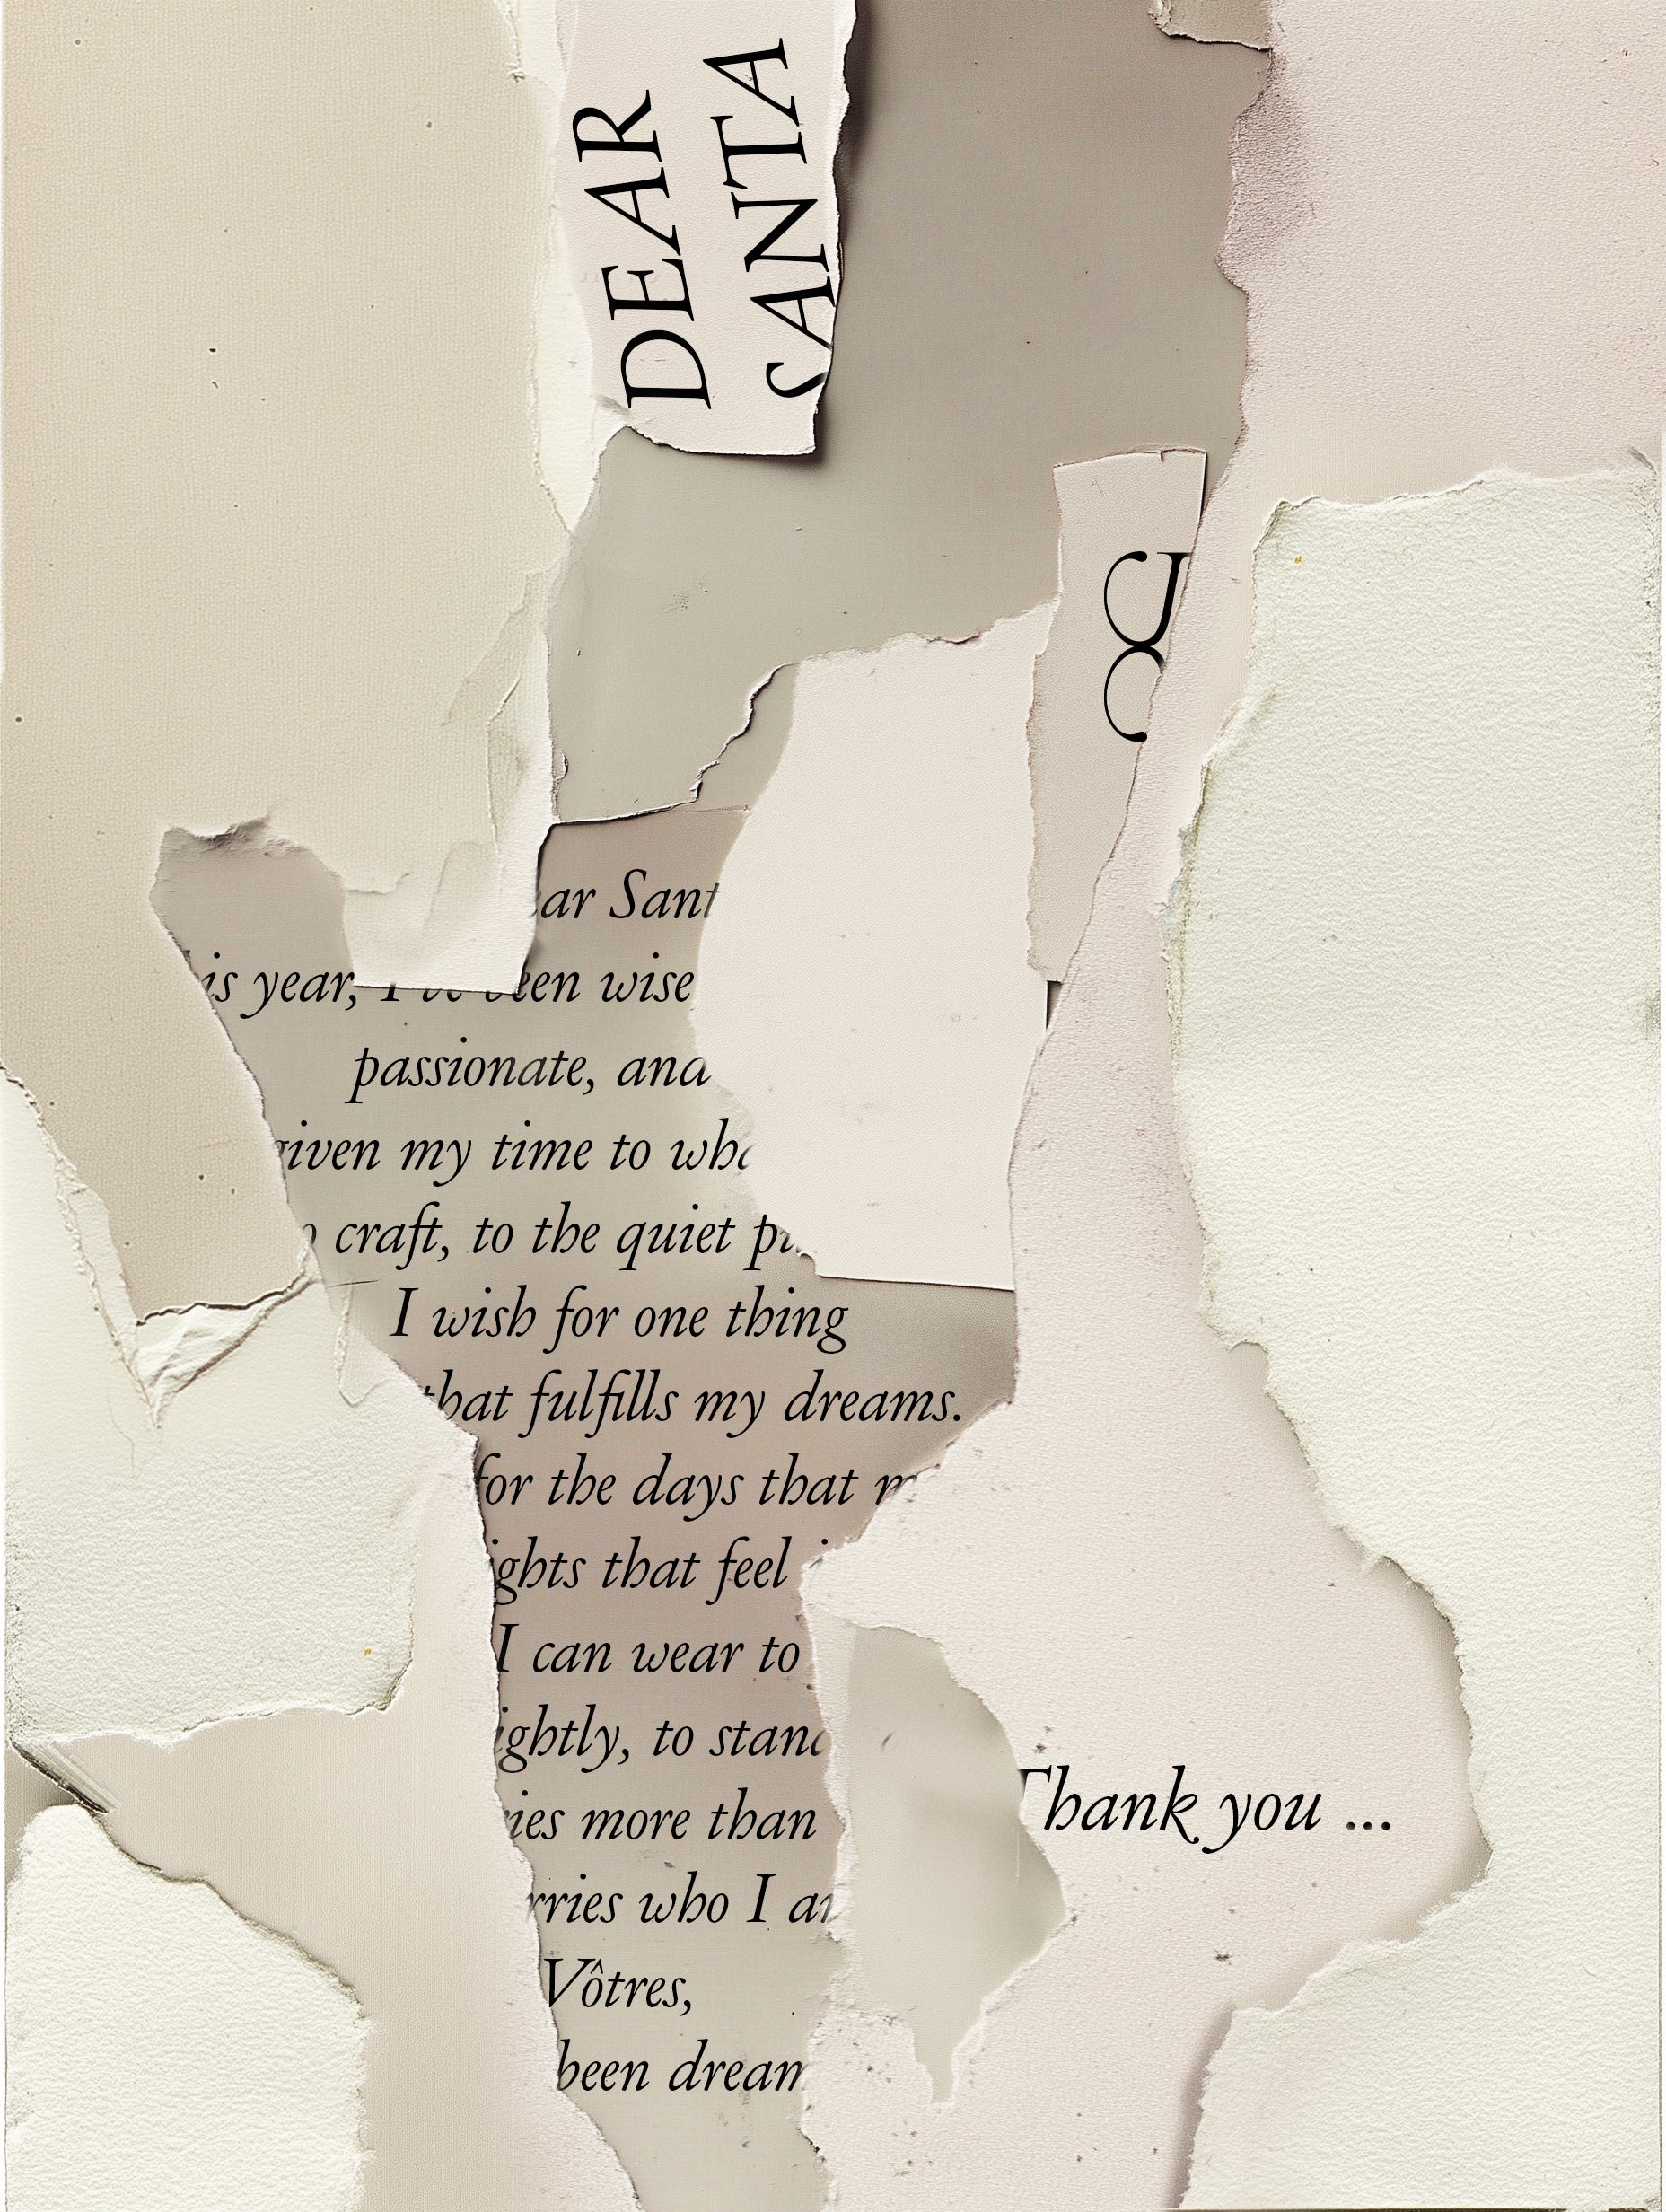 DEAR
SANTA
ar Sant
is year, I've been wise
passionate, and
given my time to wha
craft, to the quiet
I wish for one thing
that fulfills my dreams.
for the days that
ights that feel
I can wear to
ightly, to stand
ies more than
rries who I am
Vôtres,
been dream
Thank you ...